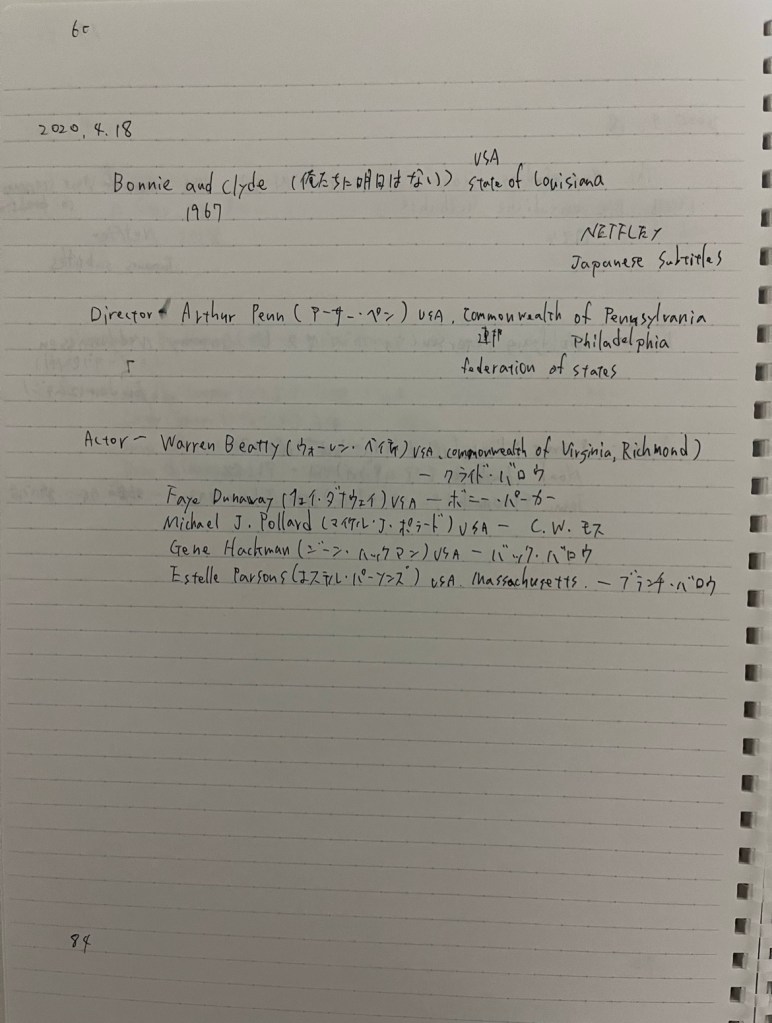 60
2020.4.18
USA
Bonnie and Clyde (俺たちに明日はない) State of Louisiana
1967
NETFLEY
Japanese Subtitles
Director - Arthur Penn (アーサー・ペン) USA. Commonwealth of Pennsylvania
連邦 Philadelphia
federation of states
Actor - Warren Beatty (ウォーレン・ベイティ) USA. commonwealth of Virginia, Richmond)
- クライド・バロウ
Faye Dunaway (フェイ・ダナウェイ) USA - ボニー・パーカー
Michael J. Pollard (マイケル・J・ポラード) USA - C.W.モス
Gene Hackman (ジーン・ハックマン) USA - バック・バロウ
Estelle Parsons (エステル・パーソンズ) USA. Massachusetts. - ブランチ・バロウ
84